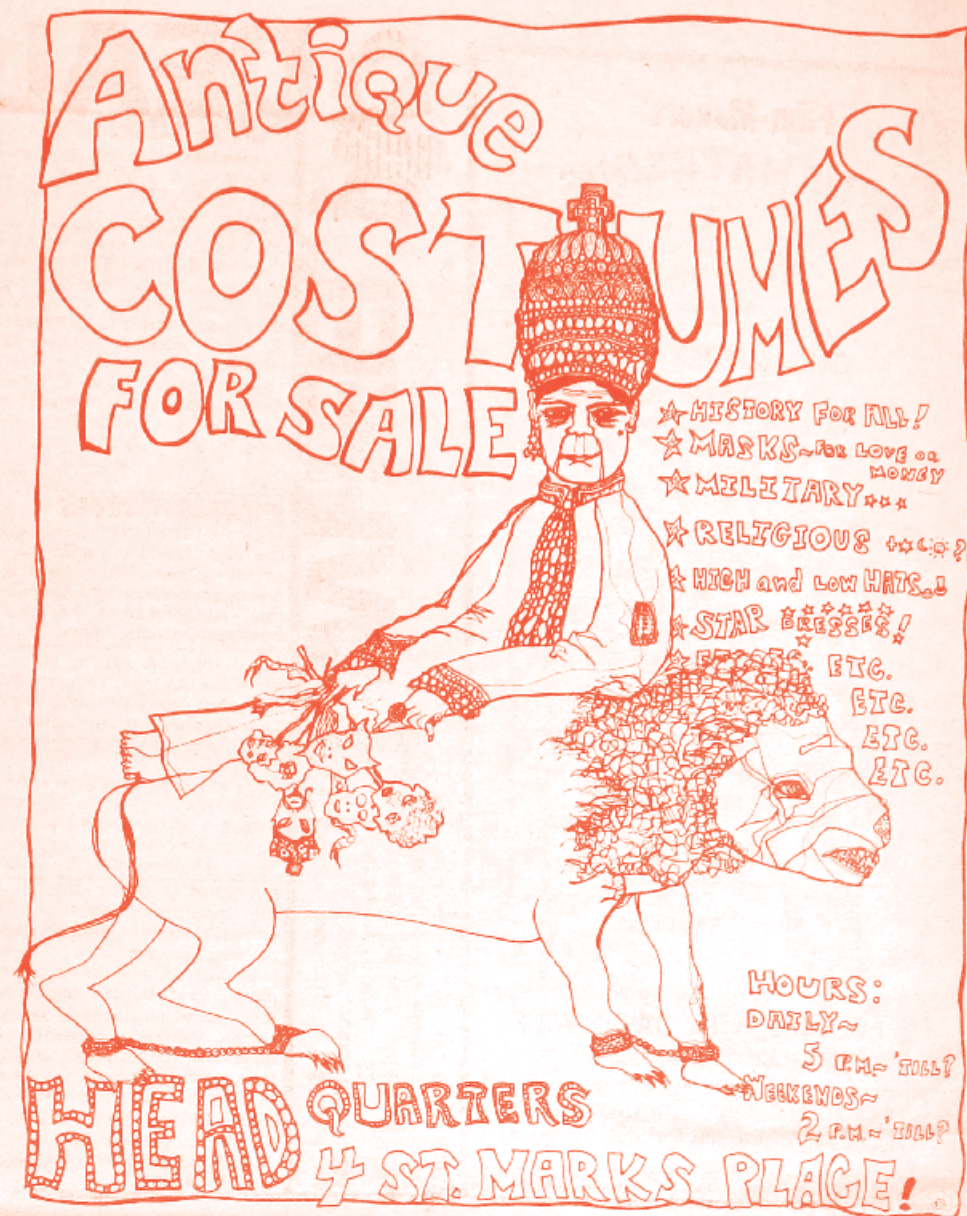 Antique
COSTUMES
FOR SALE
HISTORY FOR ALL!
MASKS~FOR LOVE OR
MONEY
MILITARY
RELIGIOUS ?
HIGH and LOW HATS..!
STAR DRESSES!
ETC. ETC. ETC.
ETC.
ETC.
ETC.
HOURS:
DAILY~
5 P.M~ 'TILL?
WEEKENDS~
2 P.M.~'TILL?
HEAD QUARTERS
4 ST. MARKS PLACE!